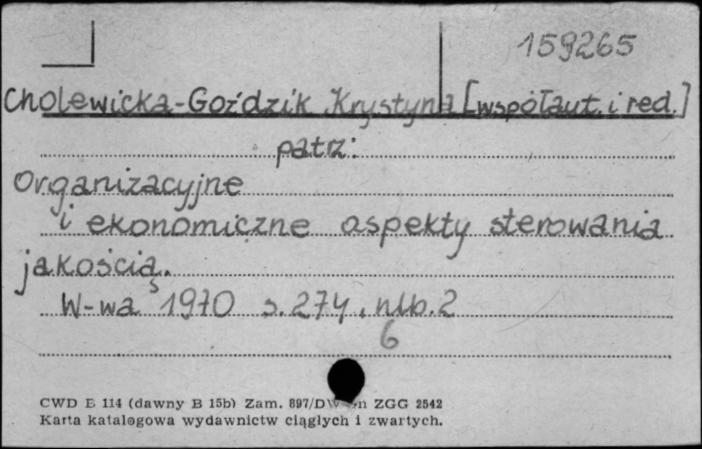 159265
Cholewicka-Goździk Krystyna [współaut. i red.]
patrz:
Organizacyjne
i ekonomiczne aspekty sterowania
jakością.
W-wa 1970 s. 274, nlb. 2
6
CWD B 114 (dawny B 15b) Zam. 897/DW ZGG 2542
Karta katalogowa wydawnictw ciągłych i zwartych.